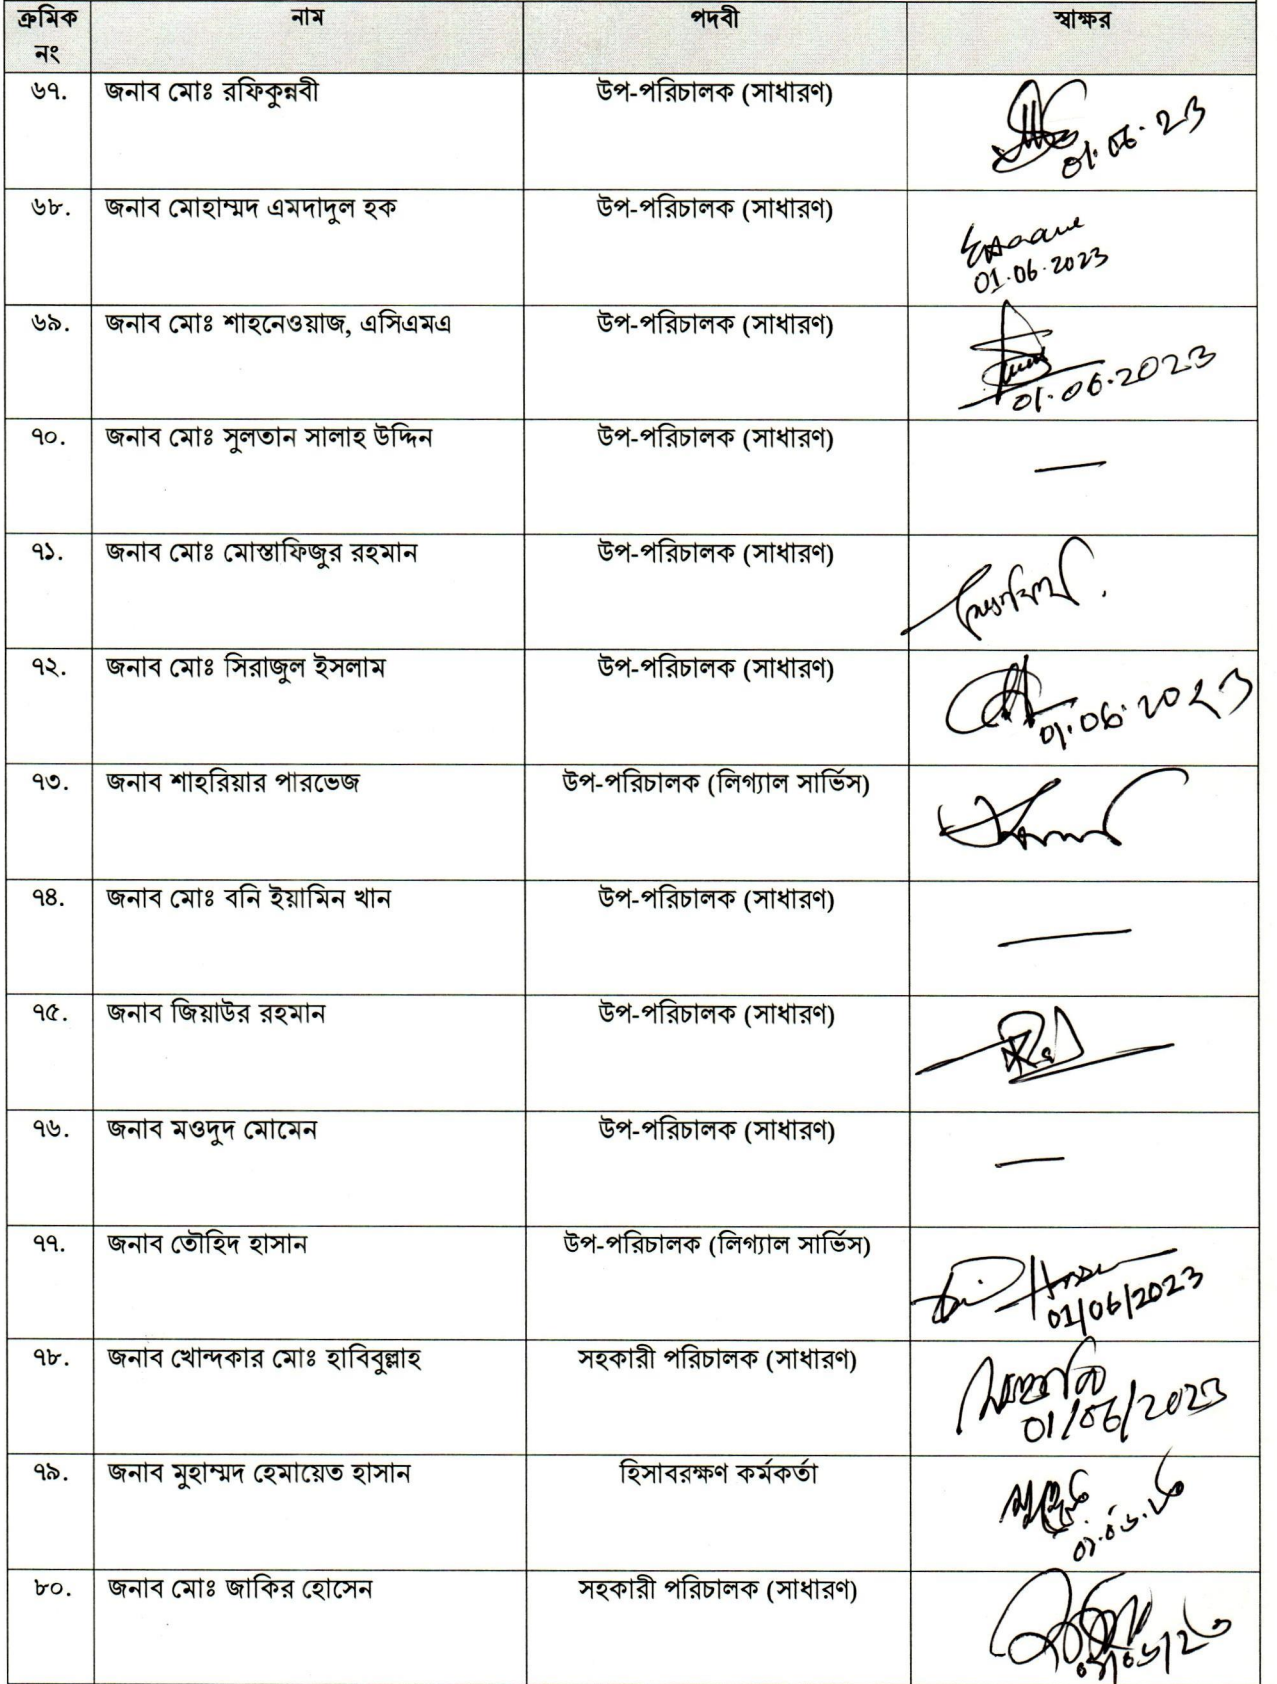 ক্রমিক নং নাম পদবী স্বাক্ষর
৬৭. জনাব মোঃ রফিকুন্নবী উপ-পরিচালক (সাধারণ)
01.06.23
৬৮. জনাব মোহাম্মদ এমদাদুল হক উপ-পরিচালক (সাধারণ)
01.06.2023
৬৯. জনাব মোঃ শাহনেওয়াজ, এসিএমএ উপ-পরিচালক (সাধারণ)
01.06.2023
৭০. জনাব মোঃ সুলতান সালাহ উদ্দিন উপ-পরিচালক (সাধারণ) —
৭১. জনাব মোঃ মোস্তাফিজুর রহমান উপ-পরিচালক (সাধারণ)
৭২. জনাব মোঃ সিরাজুল ইসলাম উপ-পরিচালক (সাধারণ)
01.06.2023
৭৩. জনাব শাহরিয়ার পারভেজ উপ-পরিচালক (লিগ্যাল সার্ভিস)
৭৪. জনাব মোঃ বনি ইয়ামিন খান উপ-পরিচালক (সাধারণ) —
৭৫. জনাব জিয়াউর রহমান উপ-পরিচালক (সাধারণ)
৭৬. জনাব মওদুদ মোমেন উপ-পরিচালক (সাধারণ) —
৭৭. জনাব তৌহিদ হাসান উপ-পরিচালক (লিগ্যাল সার্ভিস)
01/06/2023
৭৮. জনাব খোন্দকার মোঃ হাবিবুল্লাহ সহকারী পরিচালক (সাধারণ)
01/06/2023
৭৯. জনাব মুহাম্মদ হেমায়েত হাসান হিসাবরক্ষণ কর্মকর্তা
০১.০৬.২৩
৮০. জনাব মোঃ জাকির হোসেন সহকারী পরিচালক (সাধারণ)
০১/০৬/২৩